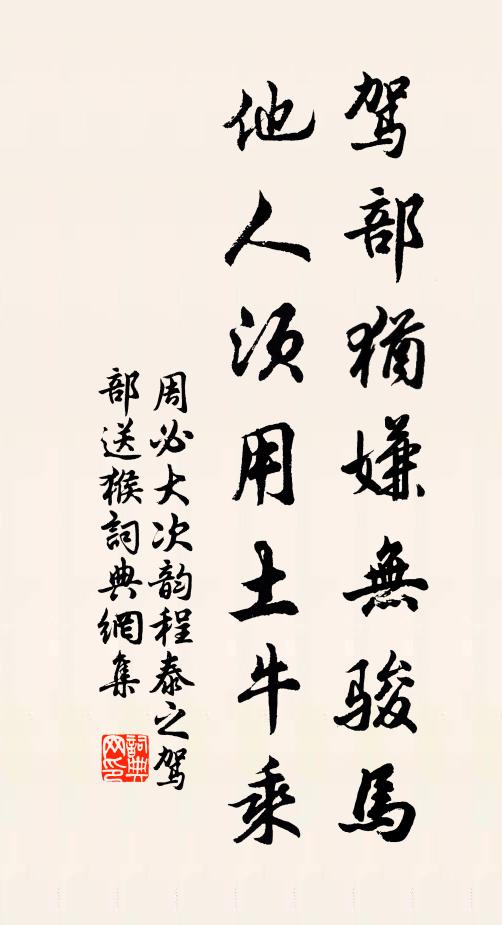 驾部猶嫌無骏馬
他人须用土牛乘
周必大次韵程泰之驾
部送猴詞典網集
詞典
网印